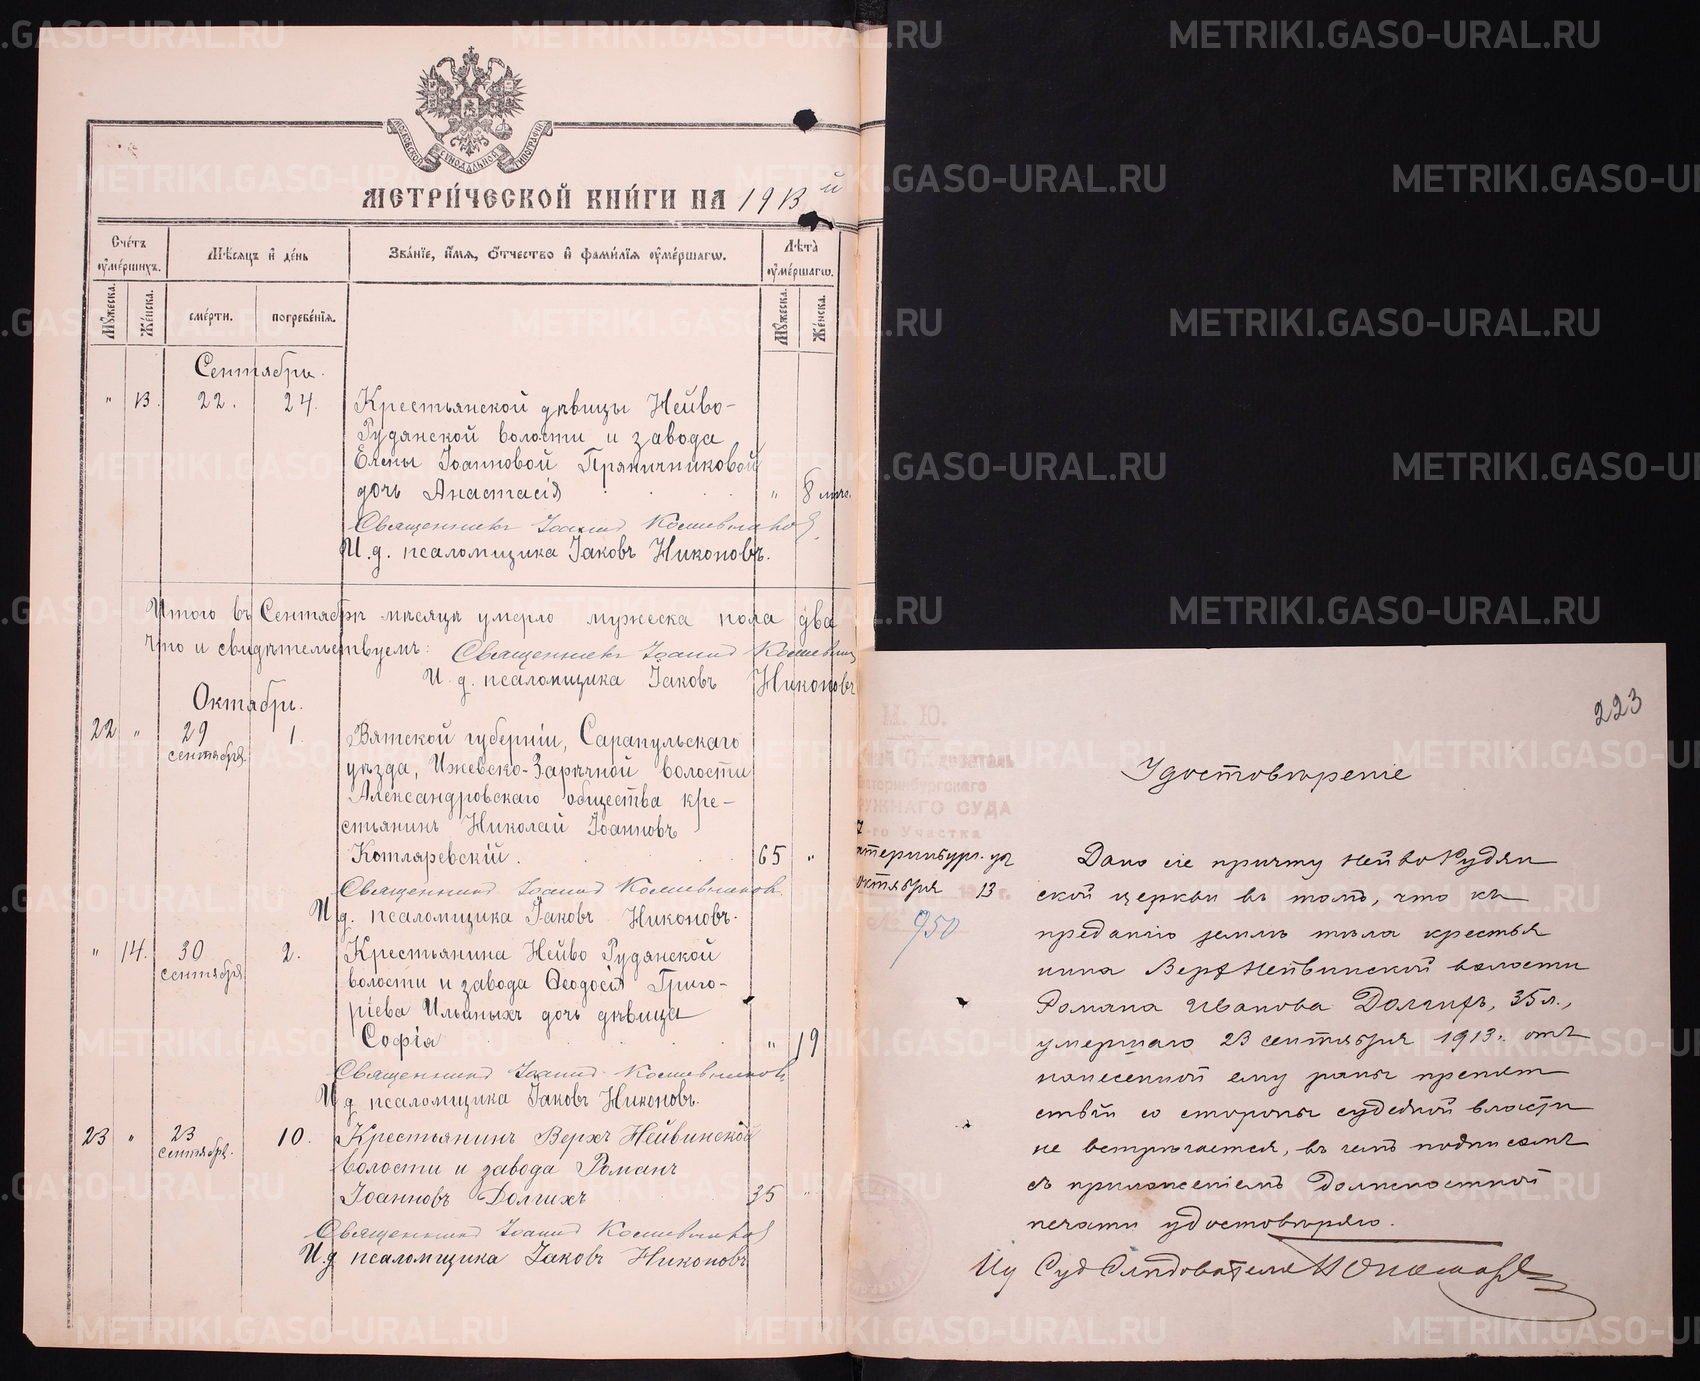 МОСКОВСКОЙ СИНОДАЛЬНОЙ ТИПОГРАФІИ
МЕТРИ́ЧЕСКОЙ КНИ́ГИ НА 1913 й
Сче́тъ ᲂуме́ршихъ.
Мѣ́сяцъ и де́нь
Зва́нїе, и́мя, ѻ́тчество и фами́лїя ᲂуме́ршагѡ.
Лѣта̀ ᲂуме́ршагѡ.
Мꙋ́жеска.
Же́нска.
сме́рти.
погребе́нїѧ.
Мꙋ́жеска.
Же́нска.
Сентябрь.
" 13. 22. 24. Крестьянской дѣвицы Нейво-
Рудянской волости и завода
Елены Іоанновой Пряничниковой
дочь Анастасія " 8 мѣс.
Священникъ Іоаннъ Кошевниковъ
И. д. псаломщика Іаковъ Никоновъ.
Итого въ Сентябрѣ мѣсяцѣ умерло мужеска пола два
что и свидѣтельствуемъ: Священникъ Іоаннъ
И. д. псаломщика Іаковъ Никоновъ
Октябрь.
22 " 29 сентября. 1. Вятской губерніи, Сарапульскаго
уѣзда, Ижевско-Зарѣчной волости
Александровскаго общества кре-
стьянинъ Николай Іоанновъ
Котляревскій. 65 "
Священникъ Іоаннъ Кошевниковъ
И. д. псаломщика Іаковъ Никоновъ.
" 14. 30 сентября 2. Крестьянина Нейво Рудянской
волости и завода Ѳеодосія Григо-
ріева Ильиныхъ дочь дѣвица
Софія " 19
Священникъ Іоаннъ Кошевниковъ
И. д. псаломщика Іаковъ Никоновъ.
23 " 23 сентября. 10. Крестьянинъ Верхъ Нейвинской
волости и завода Романъ
Іоанновъ Долгихъ 35 "
Священникъ Іоаннъ Кошевниковъ
И. д. псаломщика Іаковъ Никоновъ
223
М. Ю.
ОКРУЖНАГО СУДА
-го Участка
октября 1913 г.
№ 950
Удостовѣреніе
Дано сіе причту Нейво Рудян
ской церкви въ томъ, что къ
преданію землѣ тѣла крестья
нина Верхнейвинской волости
Романа Иванова Долгихъ, 35 л.,
умершаго 23 сентября 1913 г. отъ
нанесенной ему раны препят
ствій со стороны судебной власти
не встрѣчается, въ чемъ подписомъ
съ приложеніемъ должностной
печати удостовѣряю.
Ид Суд Слѣдователя
METRIKI.GASO-URAL.RU